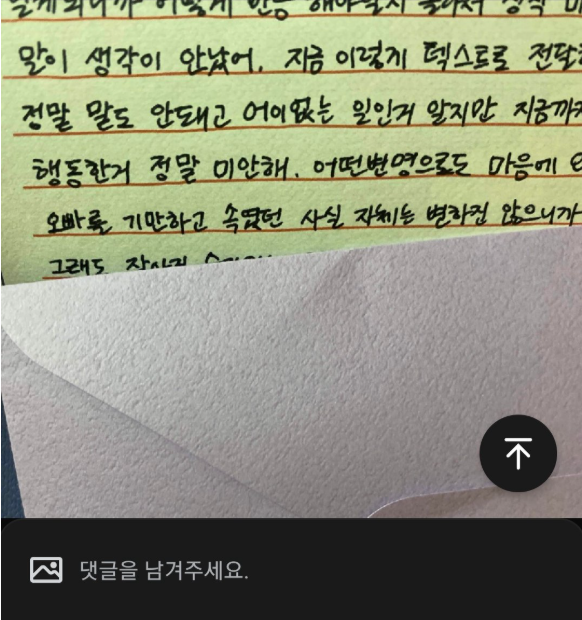 말이 생각이 안났어. 지금 이렇게 텍스트로 전달
정말 말도 안돼고 어이없는 일인거 알지만 지금까지
행동한거 정말 미안해. 어떤변명으로도 마음에
오빠를 기만하고 속였던 사실 자체는 변하진 않으니까
그래도
댓글을 남겨주세요.